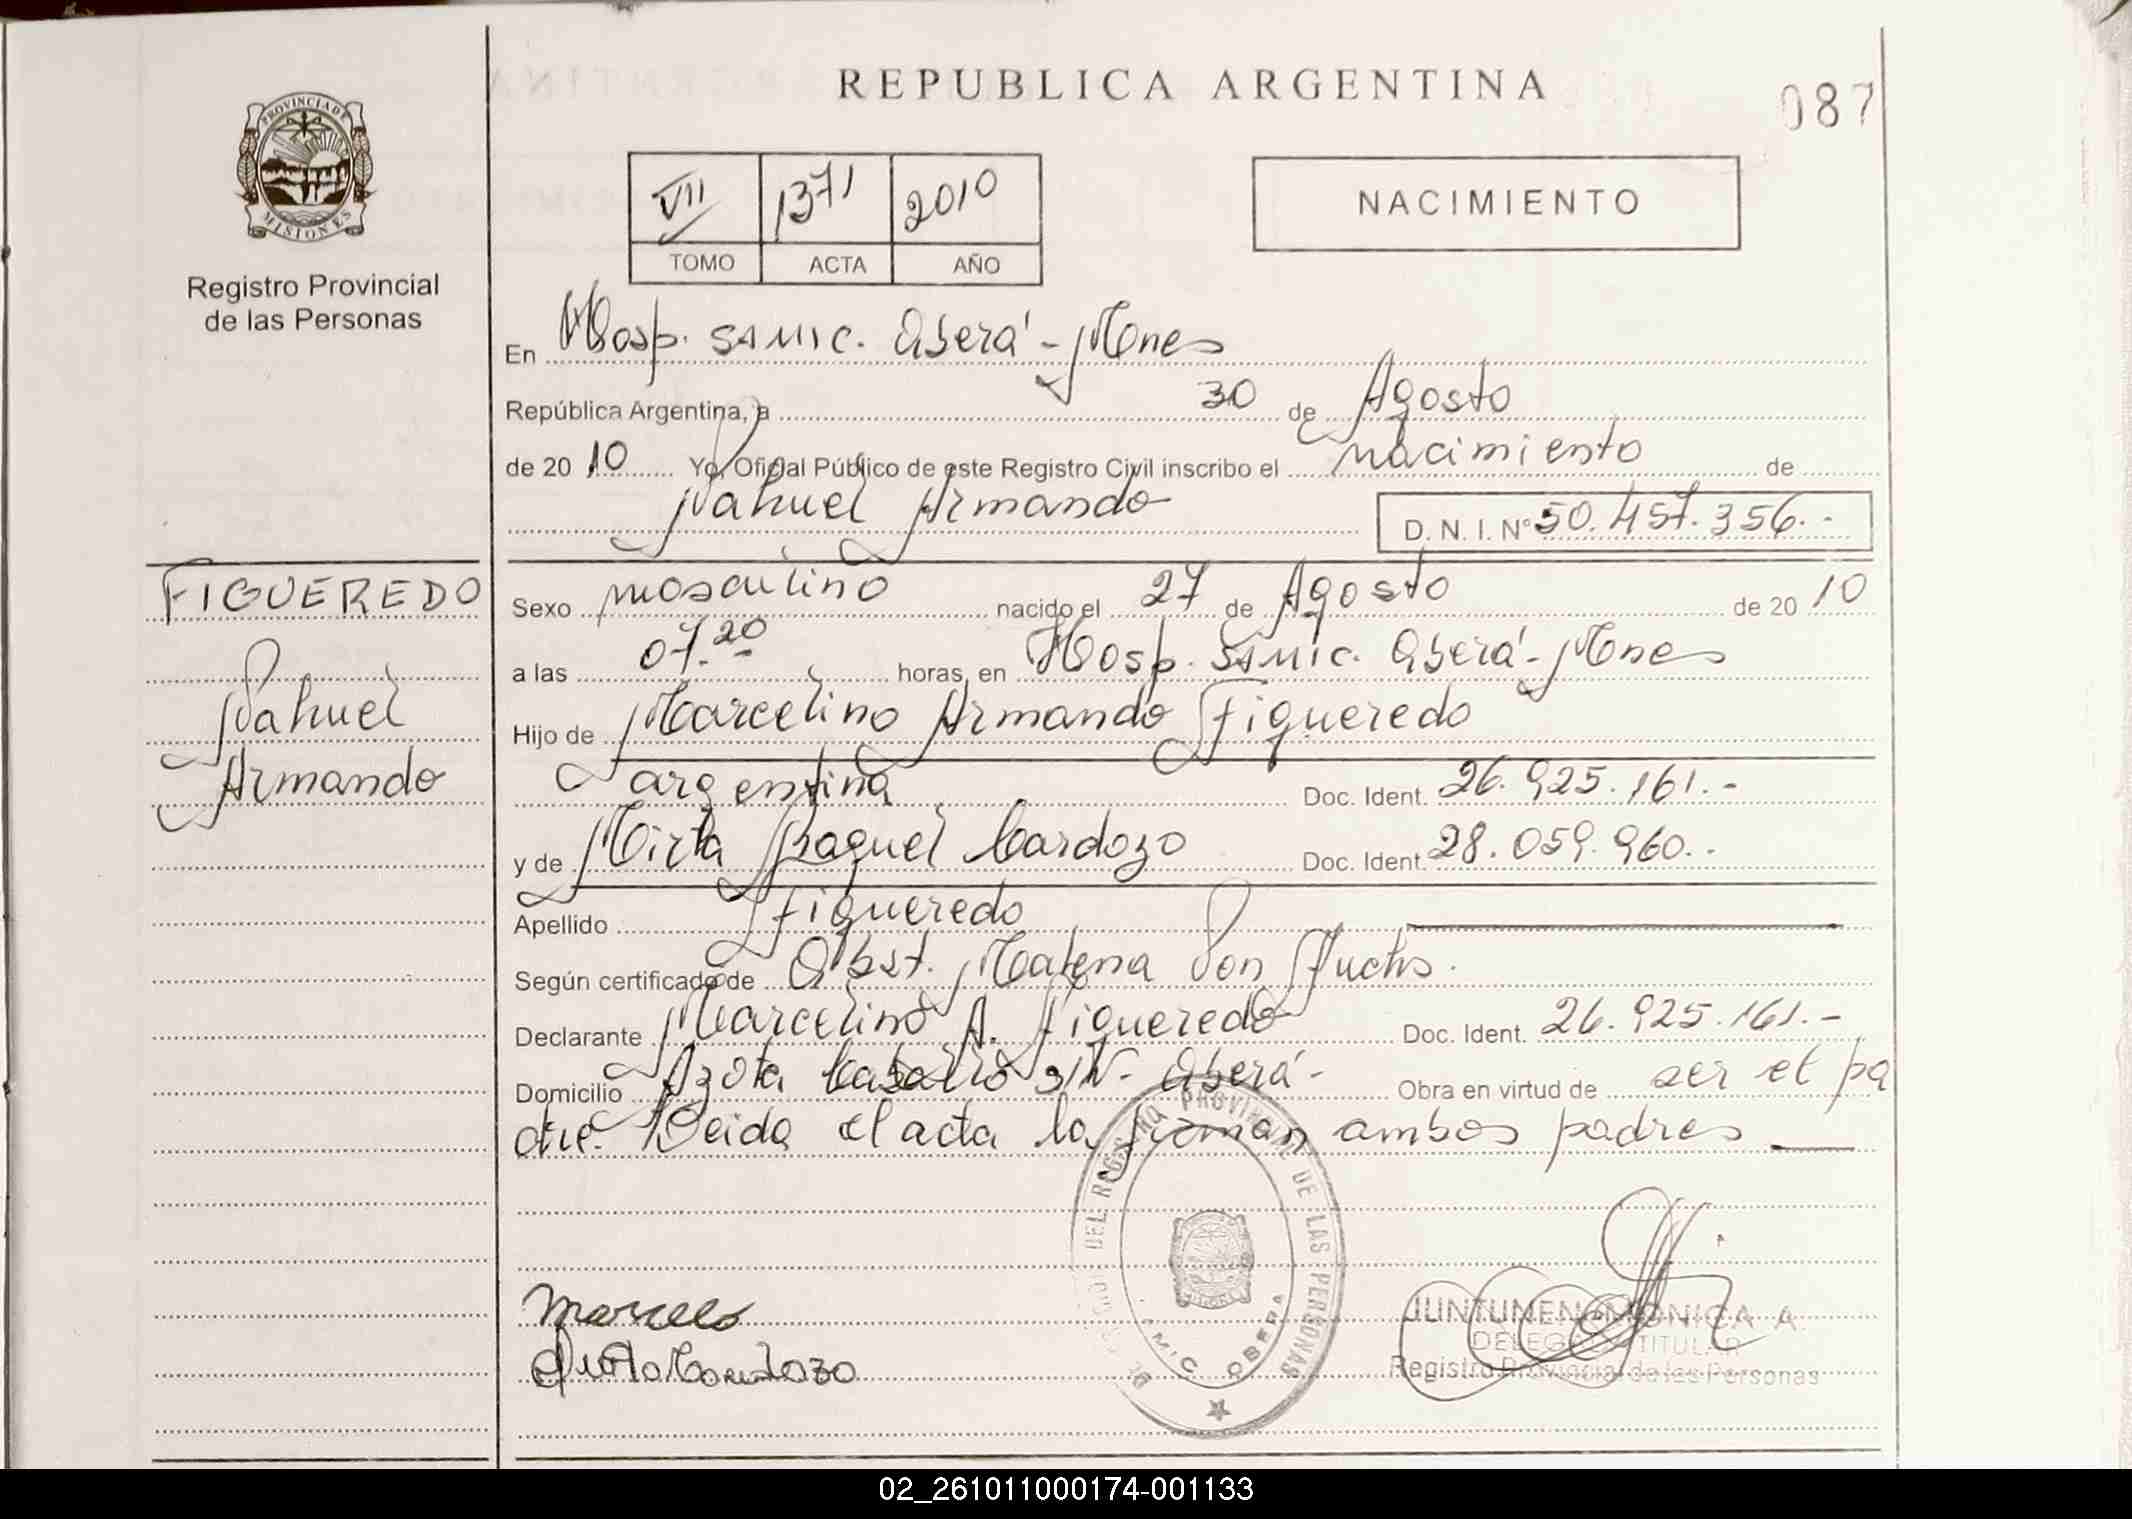 REPUBLICA ARGENTINA
087
PROVINCIA DE
MISIONES
Registro Provincial
de las Personas
VII 1371 2010
TOMO ACTA AÑO
NACIMIENTO
En Hosp. SAMIC. Oberá - Mnes
República Argentina, a 30 de Agosto
de 20 10 Yo, Oficial Público de este Registro Civil inscribo el nacimiento de
Nahuel Armando D. N. I. Nº 50.457.356.-
FIGUEREDO
Nahuel
Armando
Sexo masculino nacido el 27 de Agosto de 20 10
a las 07.20 horas, en Hosp. SAMIC. Oberá - Mnes
Hijo de Marcelino Armando Figueredo
argentina Doc. Ident. 26.925.161.-
y de Mirta Raquel Cardozo Doc. Ident. 28.059.960.-
Apellido Figueredo
Según certificado de Obst. Von Fuchs.
Declarante Marcelino A. Figueredo Doc. Ident. 26.925.161.-
Domicilio S/Nº- Oberá- Obra en virtud de ser el pa
dre. Leida el acta la firman ambos padres
DEL REGISTRO PROVINCIAL DE LAS PERSONAS
OBERA
Marcelo
Mirta Cardozo
JUNTUNEN MONICA A.
DELEGADA TITULAR
Registro Provincial de las Personas
02_261011000174-001133